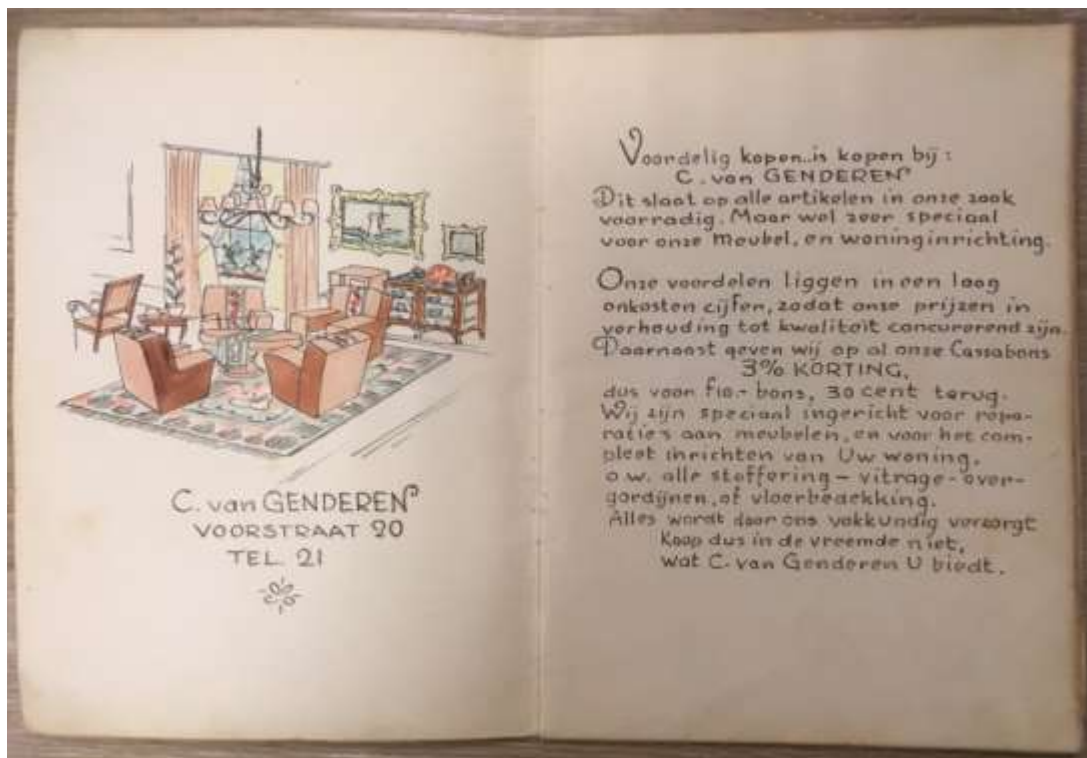 C. van GENDEREN
VOORSTRAAT 20
TEL. 21
Voordelig kopen..is kopen bij:
C. van GENDEREN
Dit slaat op alle artikelen in onze zaak
voorradig. Maar wel zeer speciaal
voor onze Meubel, en woninginrichting.
Onze voordelen liggen in een laag
onkosten cijfer, zodat onze prijzen in
verhouding tot kwaliteit concurerend zijn.
Daarnaast geven wij op al onze Cassabons
3% KORTING,
dus voor f10.- bons, 30 cent terug.
Wij zijn speciaal ingericht voor repa-
ratie's aan meubelen, en voor het com-
pleet inrichten van Uw woning,
o.w. alle stoffering - vitrage - over-
gordijnen, of vloerbedekking.
Alles wordt door ons vakkundig verzorgt
Koop dus in de vreemde niet,
wat C. van Genderen U biedt.